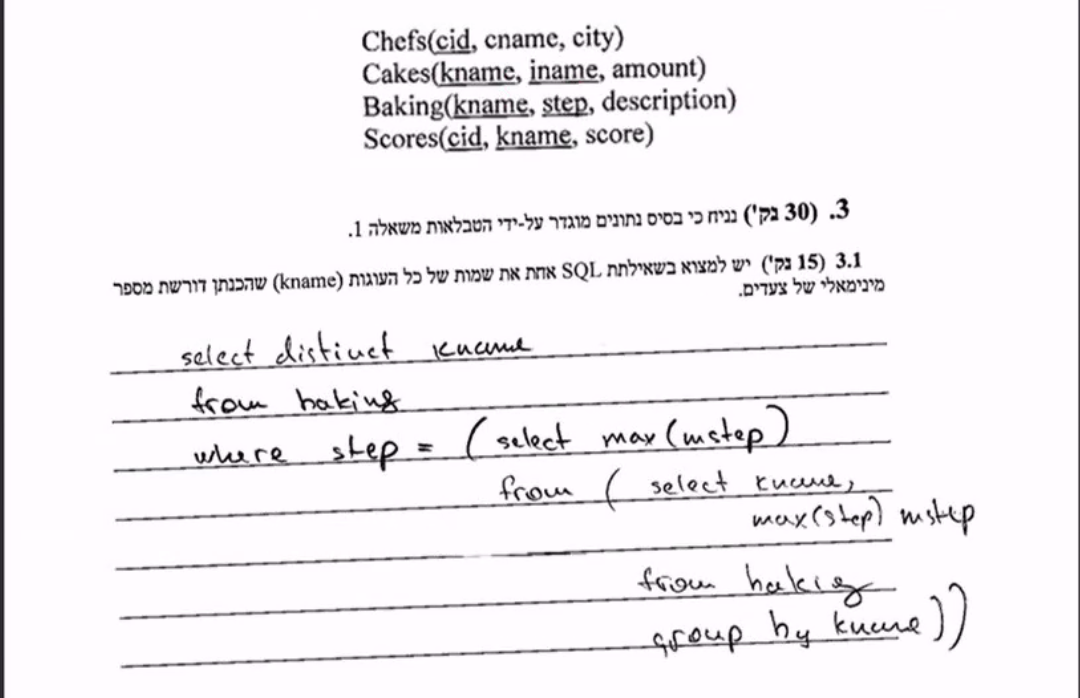 Chefs(cid, cname, city)
Cakes(kname, iname, amount)
Baking(kname, step, description)
Scores(cid, kname, score)
3. (30 נק') נניח כי בסיס נתונים מוגדר על-ידי הטבלאות משאלה 1.
3.1 (15 נק') יש למצוא בשאילתת SQL אחת את שמות של כל העוגות (kname) שהכנתן דורשת מספר
מינימאלי של צעדים.
select distinct kname
from baking
where step = (select max(mstep)
from ( select kname,
max(step) mstep
from baking
group by kname))